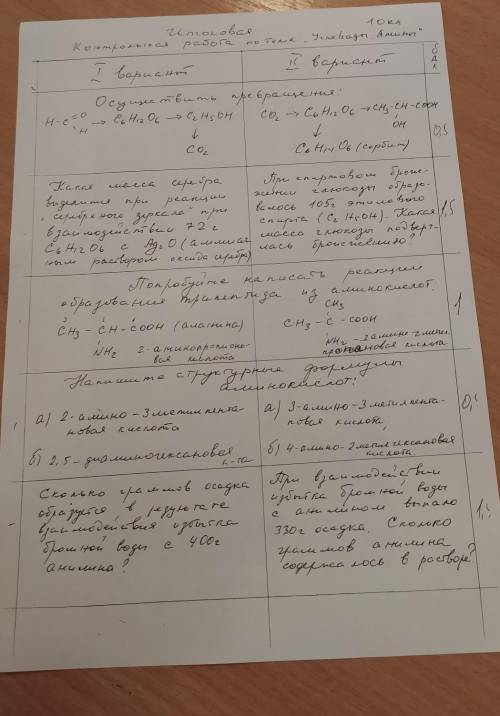 Итоговая 10кл
Контрольная работа по теме „Углеводы Амины"
I вариант
II вариант
Осуществить превращения:
H-C=O H → C6H12O6 → C2H5OH
↓
CO2
CO2 → C6H12O6 → CH3-CH-COOH
OH
↓
C6H14O6 (сорбит)
0,5
Какая масса серебра
выделится при реакции
„серебряного зеркала" при
взаимодействии 72 г
C6H12O6 с Ag2O (аммиач
ным раствором оксида серебра)
При спиртовом броже-
жении глюкозы образо-
валось 105г этилового
спирта (C2H5OH). Какая
масса глюкозы подверг-
лась брожению?
1,5
Попробуйте написать реакции
образования трипептида из аминокислот.
CH3 - CH - COOH (аланина)
NH2 2-аминопропионо-
вая кислота
CH3
CH3 - C - COOH
NH2 - 2 амино-2 метил
пропановая кислота
1
Напишите структурные формулы
аминокислот:
а) 2-амино-3 метилпента-
новая кислота
б) 2,5-диаминогексановая
к-та
а) 3-амино-3 метилпента-
новая кислота
б) 4-амино-2 метилгексановая
кислота
Сколько граммов осадка
образуется в результате
взаимодействия избытка
бромной воды с 400г
анилина?
При взаимодействии
избытка бромной воды
с анилином выпало
330г осадка. Сколько
граммов анилина
содержалось в растворе?